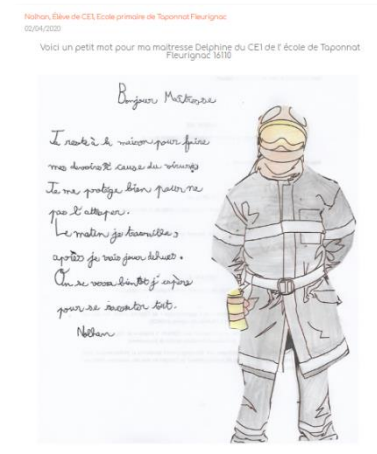 Nathan, Élève de CE1, Ecole primaire de Taponnat Fleurignac
02/04/2020
Voici un petit mot pour ma maitresse Delphine du CE1 de l' école de Taponnat
Fleurignac 16110
Bonjour Maitresse
Je reste à la maison pour faire
mes devoirs à cause du virus
Je me protège bien pour ne
pas l'attaper.
Le matin je travaille,
après je vais jouer dehors.
On se verra bientôt j'espère
pour se raconter tout.
Nathan